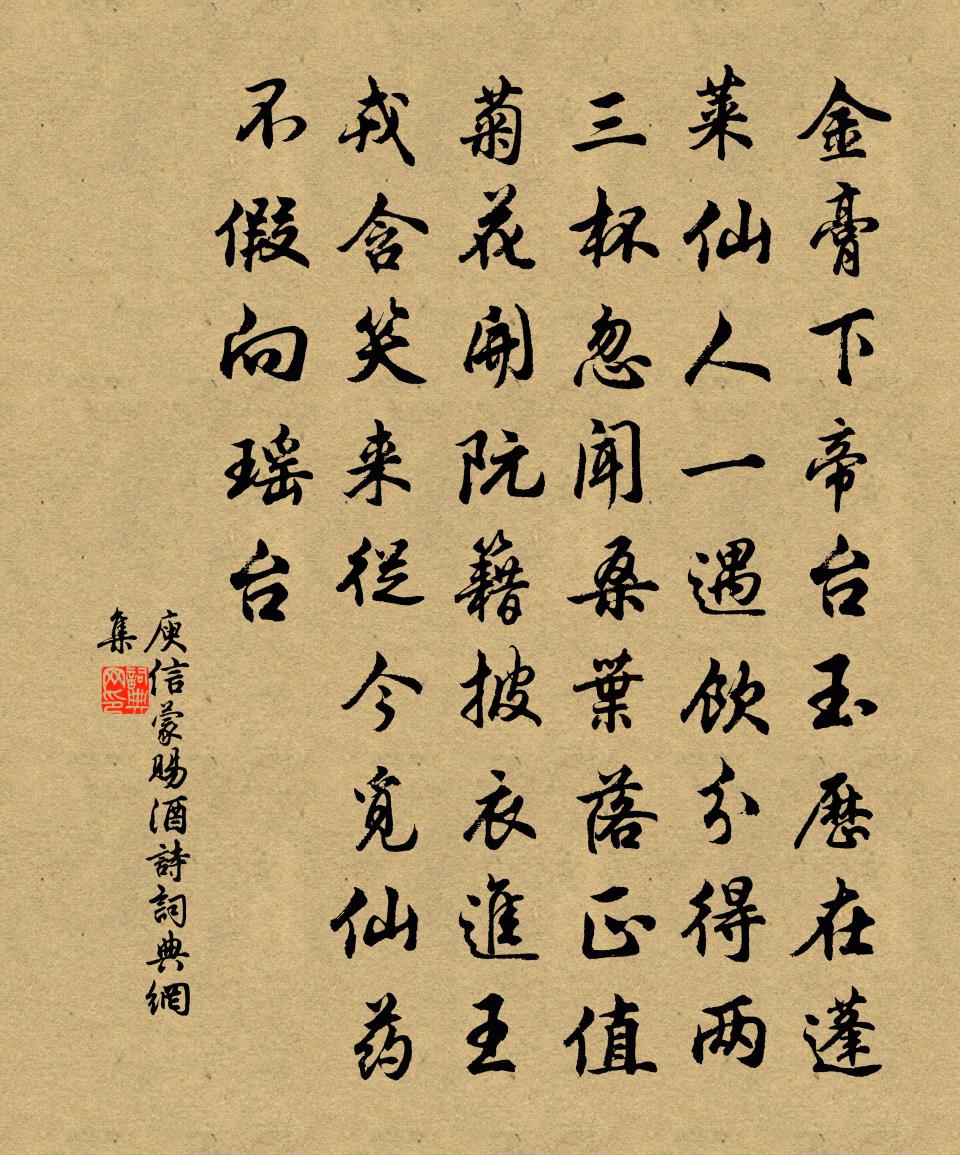 金膏下帝台玉历在蓬
莱仙人一遇飲分得两
三杯忽闻桑葉落正值
菊花開阮籍披衣進王
戎含笑来從今覓仙药
不假向瑶台
庾信蒙賜酒詩詞典網
集
詞典
网印